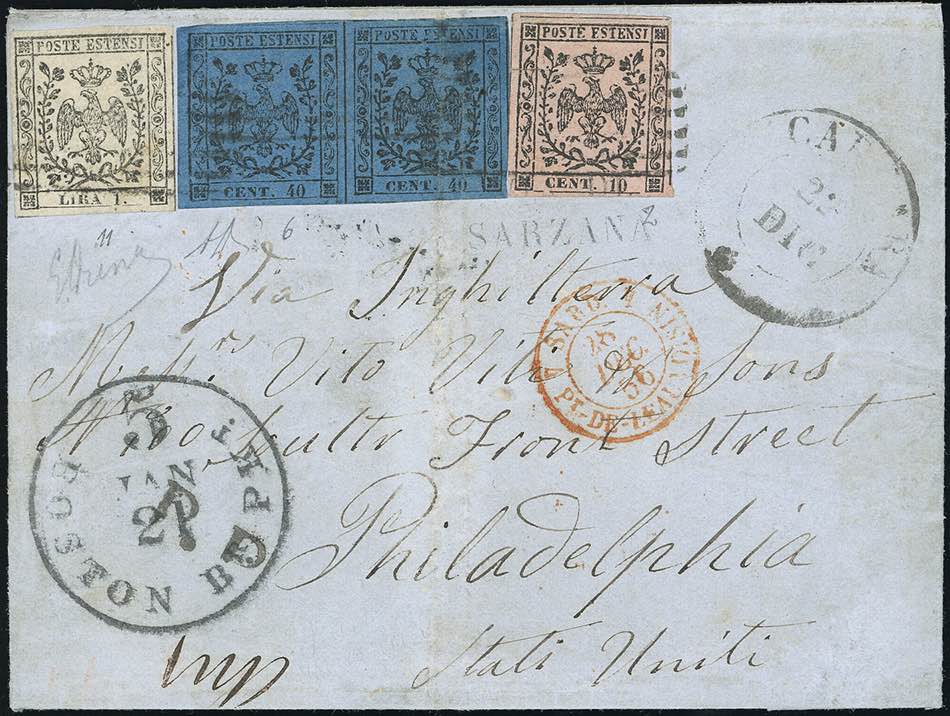 POSTE ESTENSI
LIRA 1.
POSTE ESTENSI
CENT. 40
POSTE ESTENSI
CENT. 40
POSTE ESTENSI
CENT. 10
SARZANA
DIC
Via Inghilterra
Mess.rs Vito Viti & Sons
South Front Street
Philadelphia
Stati Uniti
SARD.
PT-DE-BEAUV
56
BOSTON BR. PKT.
JAN
11
6